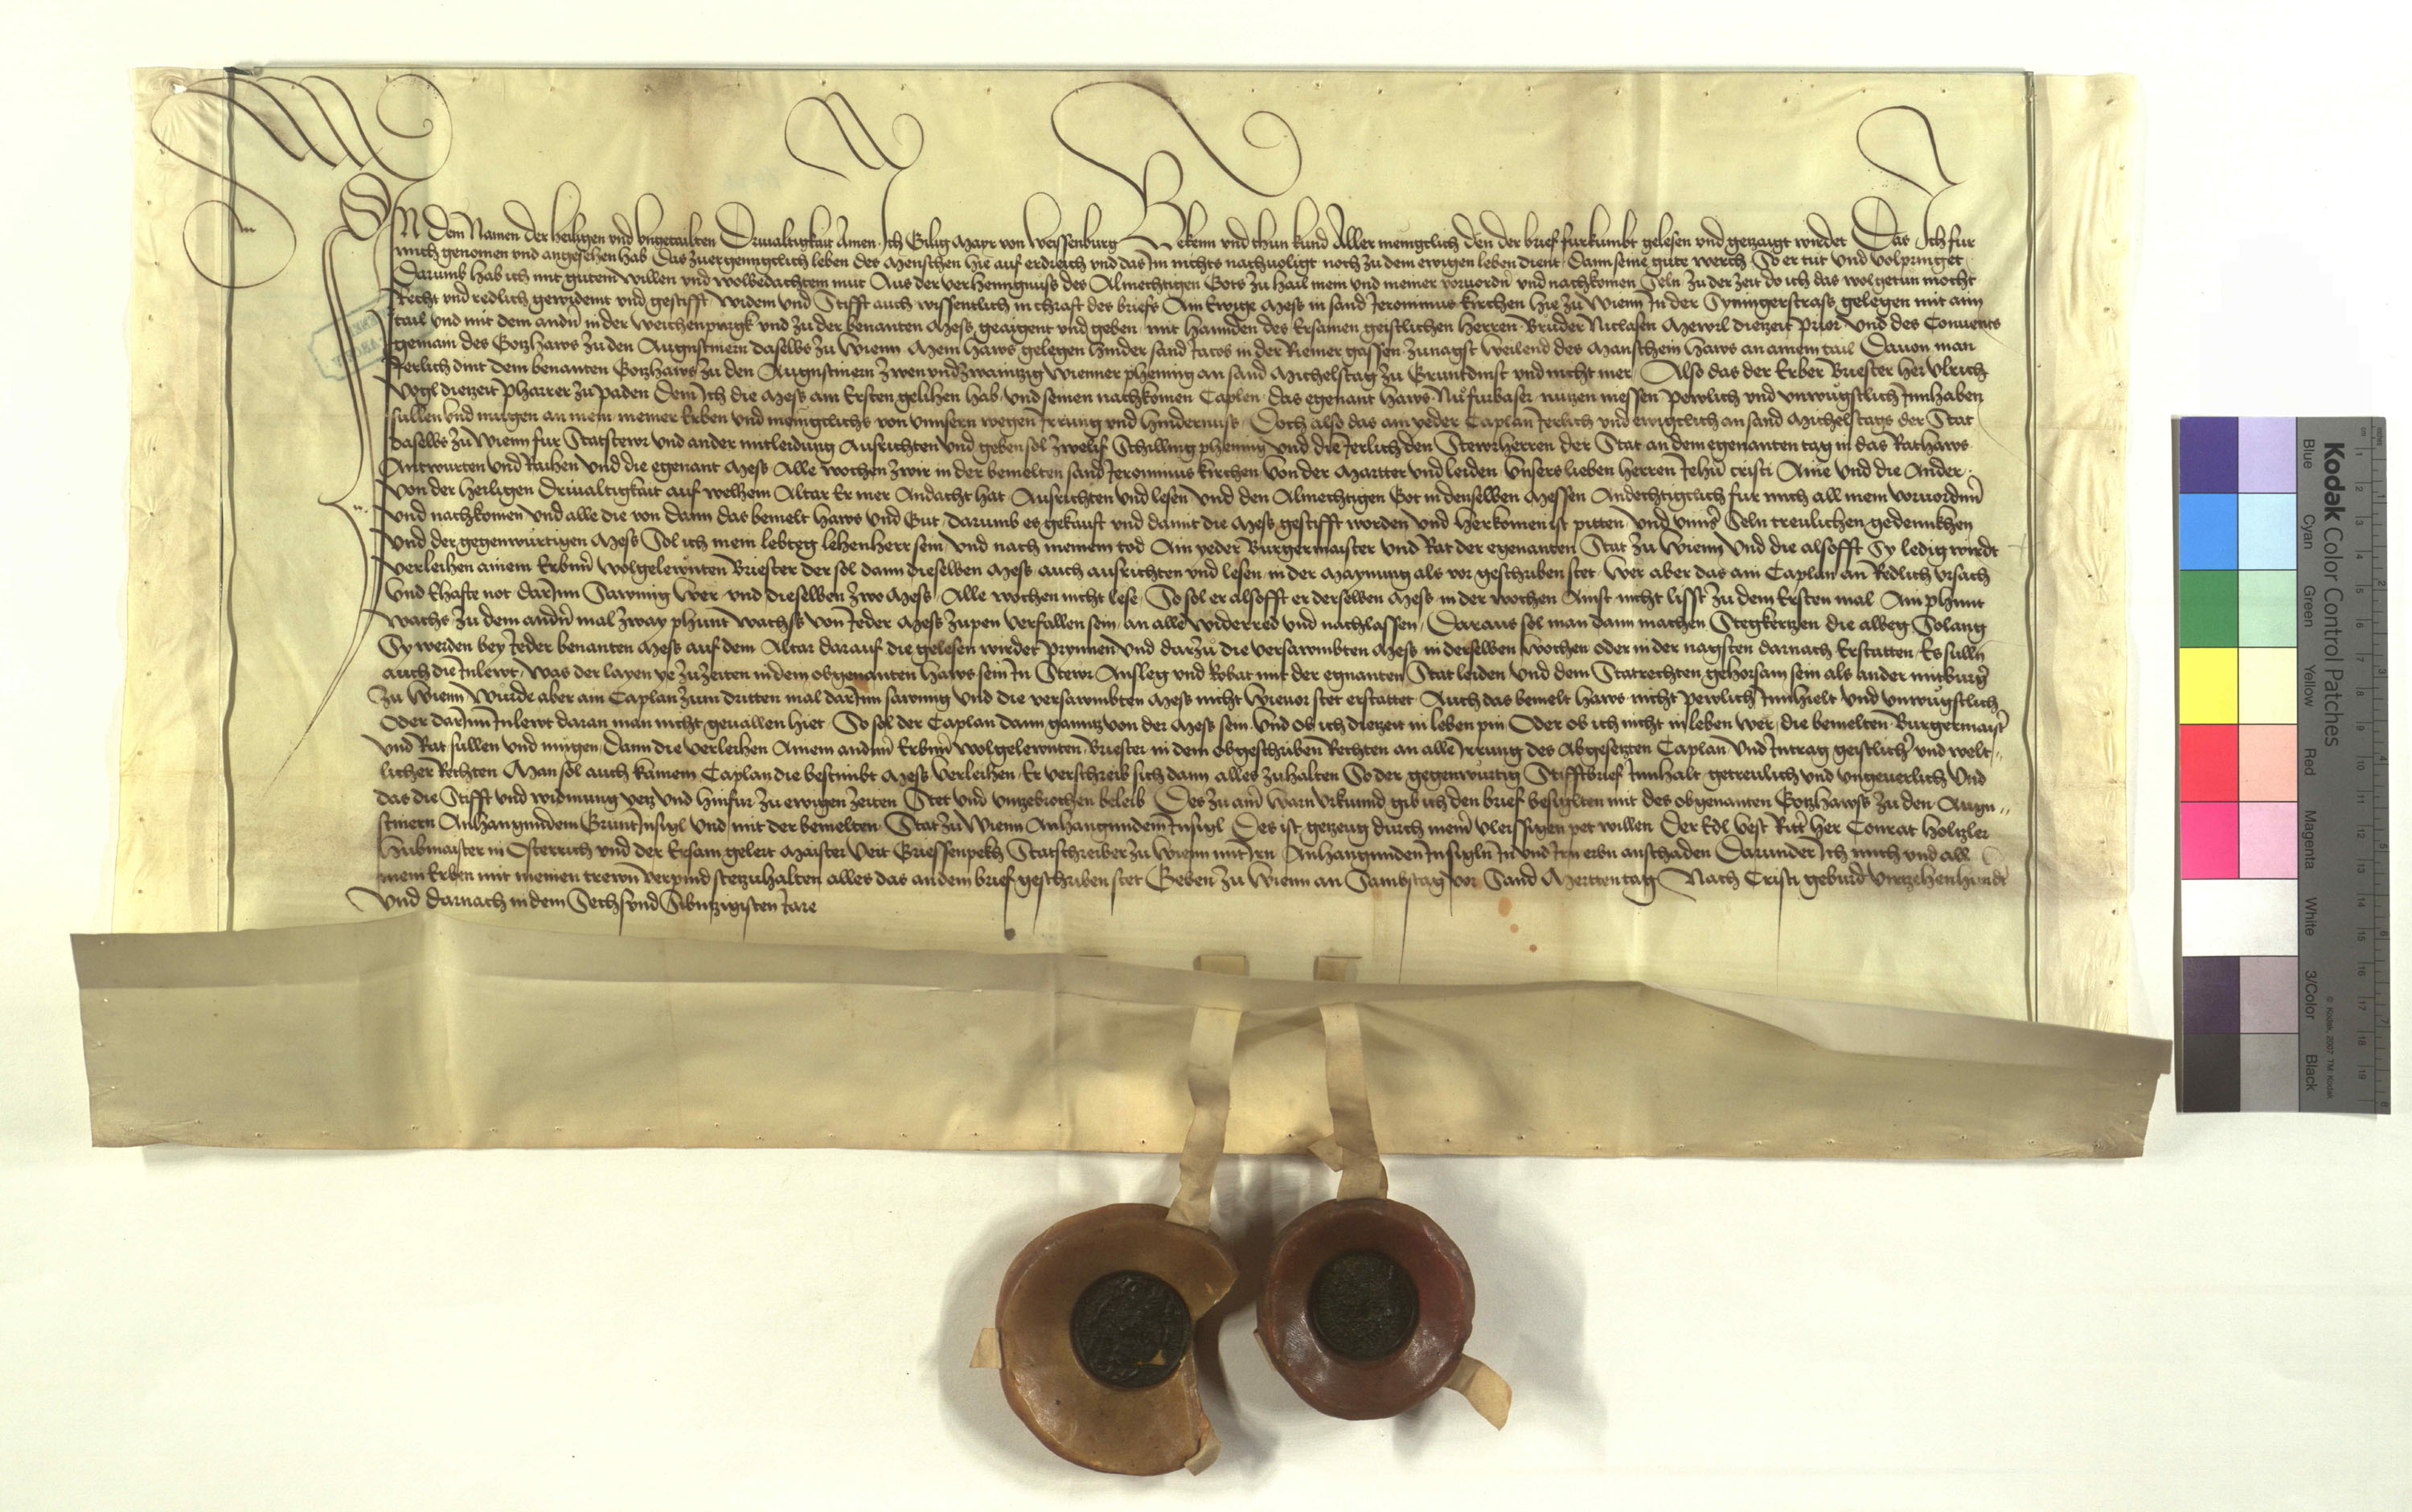 IN dem Namen der heiligen und ungetailten Driualtigkait Amen Ich Gilig Mayr von Weissenburg Bekenn und thun kund Aller meingclich den der brief furkumbt gelesen und getzaigt wirdet Das Ich fur
mich genomen und angesehen hab Das zuergenngklich leben des Menschen hie auf erdreich und das Im nichts nachuoligt noch zu dem ewigen leben dient Dann seine gute werch So er tut und volpringet
Darumb hab ich mit gutem willen und wolbedachtem mut Aus der verhenngnuss des Almechtigen Gots zu hail mein und meiner voruordn und nachkomen Seln zu der zeit do ich das wolgetun mocht
Recht und redlich gewidemt und gestifft widem und Stifft auch wissentlich in chraft des briefs Ain Ewige Mess in sand Jeronimus kirchen hie zu Wienn In der Syningerstrass gelegen mit aim
tail und mit dem andn in der Weichenpurgk und zu der benanten Mess geaigent und geben mit hannden des Ersamen geistlichen herren Bruder Niclasen dietzeit Prior und des Conuents
gemain des Gotzhaws zu den Augustinern daselbs zu Wienn Mein haws gelegen hinder sand Jacob in der Riemer gassen zunagst weilend des Manschein haws an ainem tail Dauon man
Jerlich dint dem benanten Gotzhaws zu den Augustinern zwen undzwaintzig Wienner phening an sand Michelstag zu Gruntdinst und nicht mer Also das der Erber Briester her Ulrich
Vogl dietzeit Pharrer zu Paden Dem Ich die Mess am Ersten gelihen hab und seinen nachkomen Caplen das egenant haws Nu furbaser nutzen niessen pewlich und unwustlich Innhaben
sullen und mugen an mein meiner Erben und meingclichs von unnsern wegen Irrung und hindernuss Doch also das ain yeder Caplan Jerlich und ewigclich an sand Michelstag der Stat
daselbs zu Wienn fur Statstewr und ander mitleidung Ausrichten und geben sol zwelif Schilling phening und die Jerlich den Stewrherren der Stat an dem egenanten tag in das Rathaws
Antwurten und Raihen und die egenant Mess Alle wochen zwir in der bemelten sand Jeronimus kirchen Von der Martter und leiden Unsers lieben herren Jehu cristi Aine und die Ander
Von der heiligen Driualtigkait auf welhem Altar Er mer Andacht hat Ausrichten und lesen und den Almechtigen Got in denselben Messen Andechtigclich fur mich all mein voruordnn
und nachkomen und alle die von dann das bemelt haws und Gut darumb es gekauft und damit die Mess gestifft worden und herkomen ist pitten und unns Seln treulichen gedennkhen
Und der gegenwurtigen Mess Sol ich mein lebteg lehenherr sein und nach meinem tod Ain yeder Burgermaister und Rat der egenanten Stat zu Wienn Und die alsofft Sy ledig wirdt
verleihen ainem Erbnn wolgelewnten Briester der sol dann dieselben Mess auch ausrichten und lesen in der Maynung als vor geschriben stet Wer aber das ain Caplan an Redlich ursach
und Ehafte not darInn Sawmig wer und dieselben zwo Mess Alle wochen nicht lese So sol er alsofft er derselben Mess in der wochen Ainst nicht lisst zu dem Ersten mal Ain phunt
wachs zu dem andn mal zway phunt wachss von Jeder Mess zupen verfallen sein an alle widerred und nachlassen Daraus sol man dann machen Stegkertzen die alweg Solang
Sy werden bey Jeder benanten Mess auf dem Altar darauf die gelesen wirdet prynnen und darzu die versawmbten Mess in derselben wochen oder in der nagsten darnach Erstatten Es sulln
auch die Inlewt was der layen ye zu zeiten in dem obgenanten haws sein In Stewr Ansleg und Robat mit der egnanten Stat leiden Und dem Statrechten gehorsam sein als ander mitburg
zu Wienn Wurde aber ain Caplan zum dritten mal darInn sawmig und die versawmbten Mess nicht wieuor stet erstattet Auch das bemelt haws nicht pewlich Innhielt und unwustlich
Oder darInn Inlewt daran man nicht geuallen hiet So sol der Caplan dann ganntz von der Mess sein Und ob ich dietzeit in leben pin Oder ob ich nicht in leben wer die bemelten Burgermaist
und Rat sullen und mugen Dann die verleihen Ainem andnn Erbnn wolgelewnten Briester in dem obgeschriben Rechten an alle Irrung des Abgesetzten Caplan Und Intrag geistlich und welt
licher Rechten Man sol auch kainem Caplan die bestimbt Mess verleihen Er verschreib sich dann alles zuhalten So der gegenwurtig Stifftbrief Innhalt getreulich und ungeuerlich Und
das die Stifft und widmung yetz und hinfur zu ewigen zeiten Stet und untzebrochen beleib Des zu aim warn urkunnd gib ich den brief besigelten mit des obgenanten Gotzhawss zu den Augu
stinern Anhangundem GruntInsigl und mit der bemelten Stat zu Wienn Anhangundem Insigl Des ist getzeug durch mein vleissigen pet willen Der Edl Vest Ritt her Conrat Holtzler
Hubmaister in Osterrich und der Ersam gelert Maister Veit Griessenpekh Statschreiber zu Wienn mit Irn Anhangunden Insigln In und Irn erbn anschaden Darunder Ich mich und all
mein Erben mit meinen trewn verpind stetzuhalten alles das an dem brief geschriben stet Geben zu Wienn an Sambstag vor Sand Merttentag Nach Cristi geburd viertzehenhundt
Und darnach in dem Sechsund Sibintzigisten Jare
Kodak Color Control Patches
Blue Cyan Green Yellow Red Magenta White 3/Color Black
© Kodak, 2007 TM: Kodak